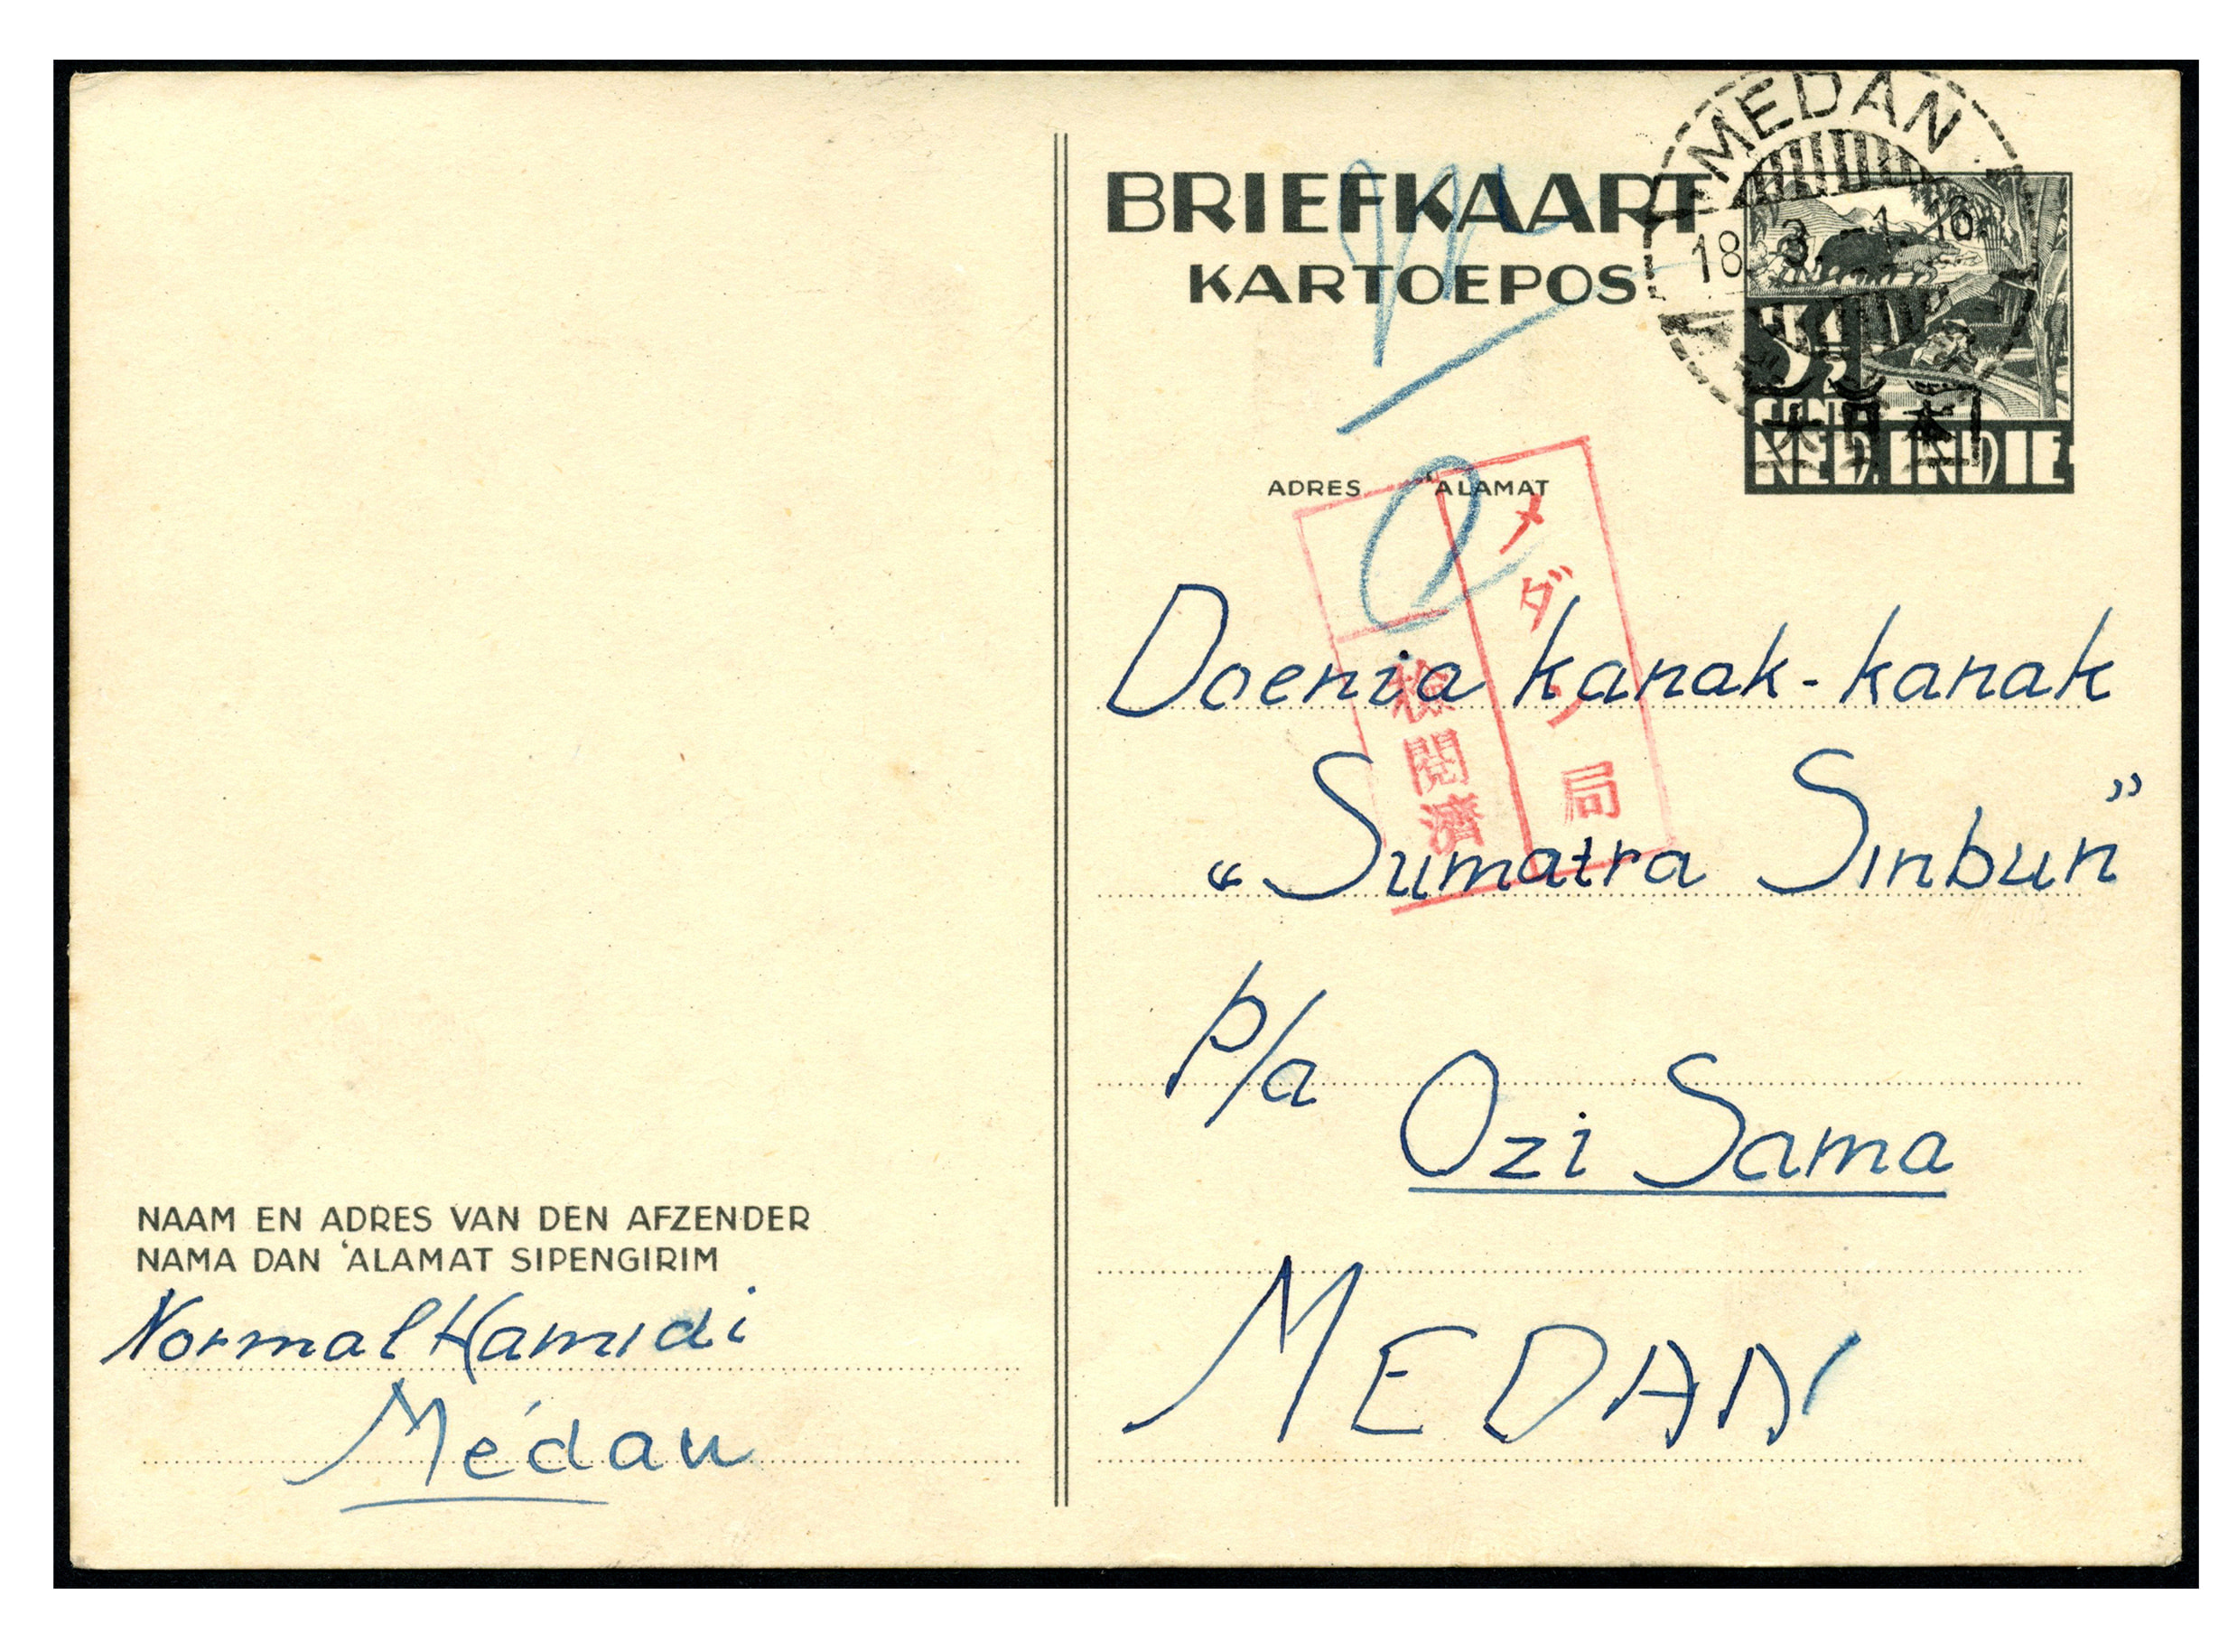 BRIEFKAART
KARTOEPOS
MEDAN
18. 3. -1. 16.
3½
CENT
NED. INDIE
大日本
ADRES ‘ALAMAT
メダン局
検閲濟
Doenia kanak-kanak
“Sumatra Sinbun”
p/a
Ozi Sama
MEDAN
NAAM EN ADRES VAN DEN AFZENDER
NAMA DAN ‘ALAMAT SIPENGIRIM
Normal Hamidi
Médan